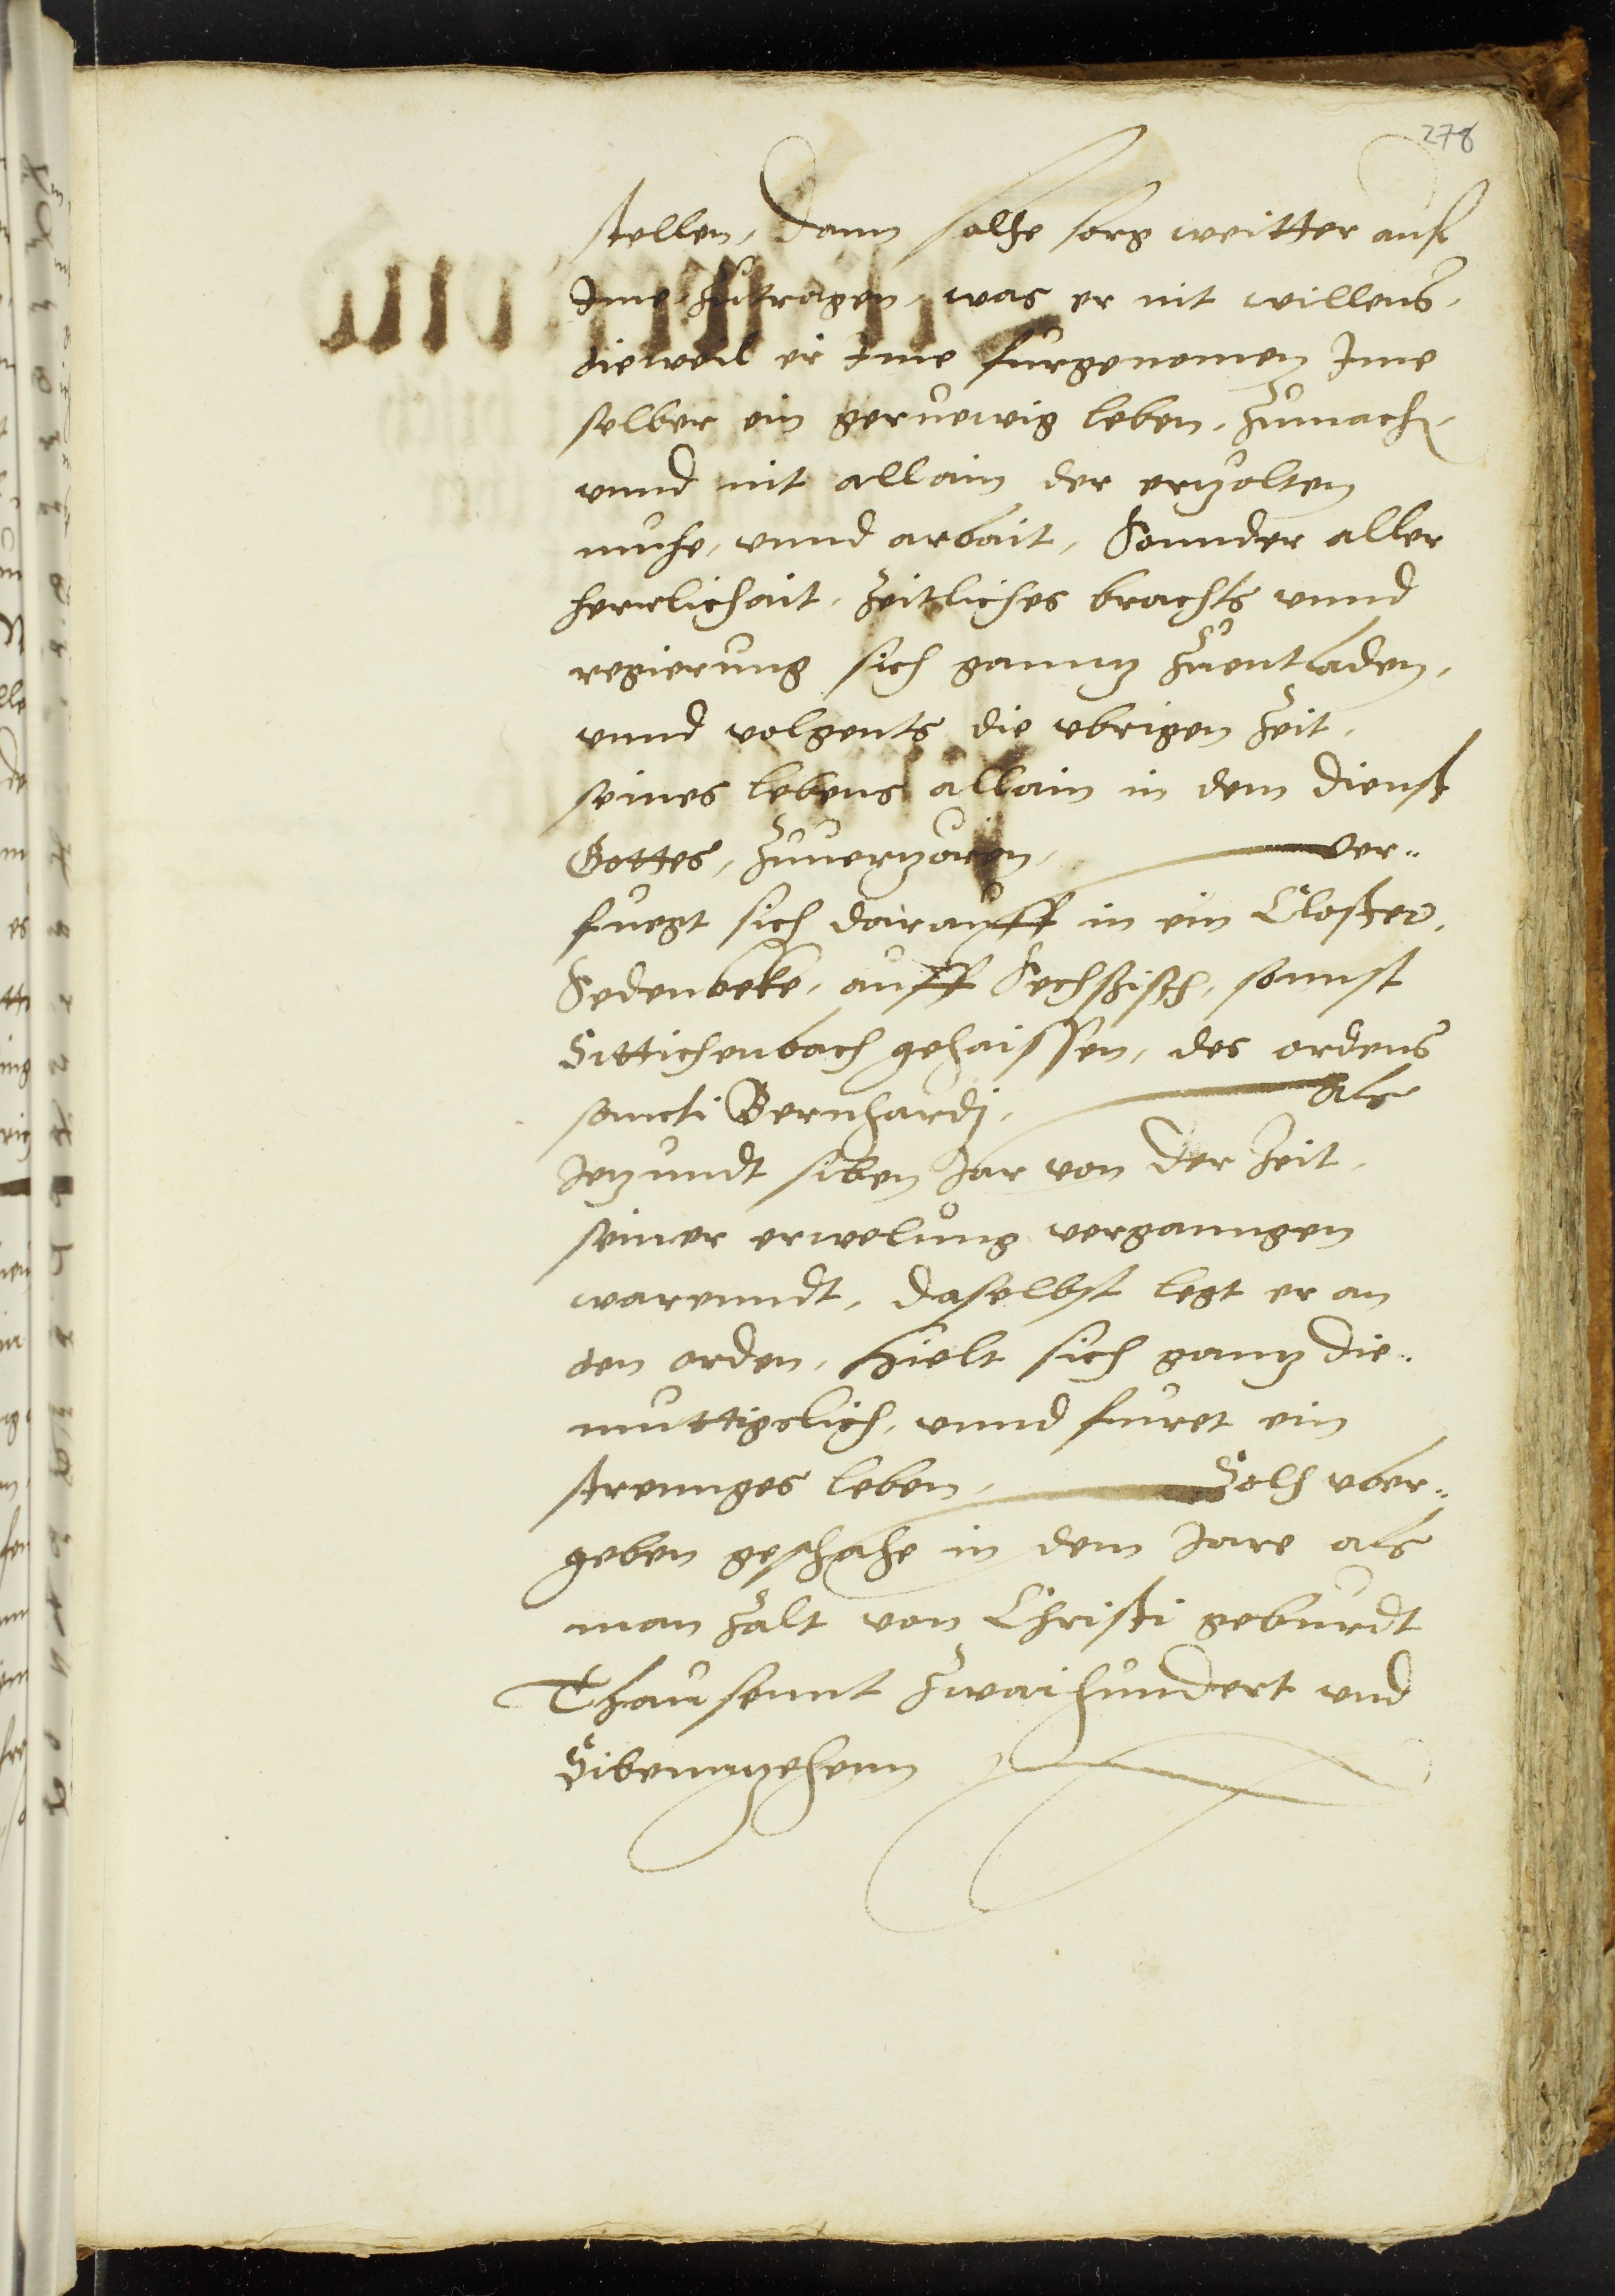 278
stellen, dann solhe sorg weitter auf
Ime zutragen, was er nit willens,
dieweil er Ime furgenomen Ime
selber ein geruewig leben, zumach
vnnd nit allain der erzelten
muhe, vnnd arbait, Sonnder aller
herrlichait, zeitliches brachts vnnd
regierung sich ganntz zuentladen,
vnnd volgents die vbrigen zeit,
seines lebens allain in dem dienst
Gottes, zuuerzören, ver-
fuegt sich darauff in ein Closter,
Sedenbeke, auff Sechssisch, sonnst
Sittichenbach gehaissen, des ordens
sancti Bernhardj, Als
Jetzundt siben Jar von der Zeit,
seiner erwelung verganngen
warenndt, daselbst legt er an
den orden, Hielt sich gantz die-
muttigelich, vnnd furet ein
strennges leben, Solh vber-
geben geschahe in dem Jare als
man zalt von Christi geburdt
Thausennt zwaihundert vnd
Sibenntzehenn